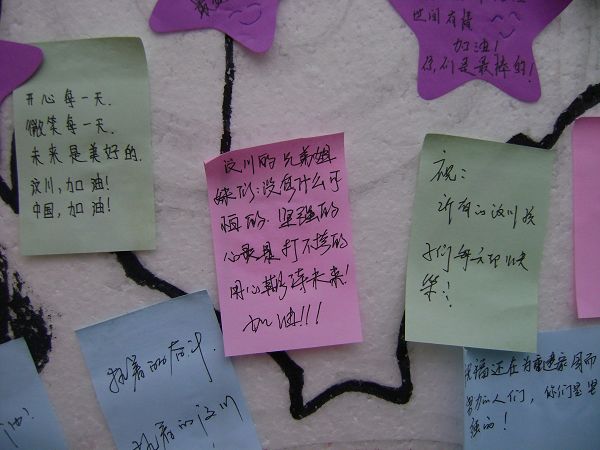 世间有情
加油!
你们是最棒的!
开心每一天.
微笑每一天.
未来是美好的.
汶川,加油!
中国,加油!
汶川的兄弟姐
妹们:没有什么可
怕的.坚强的
心最是打不垮的
用心 未来!
加油!!!
祝:
所有的汶川孩
子们每天都快
樂!
执着的奋斗.
执着的汶川
祝福还在为重建家园而
努力的人们,你们是最
棒的!
油!